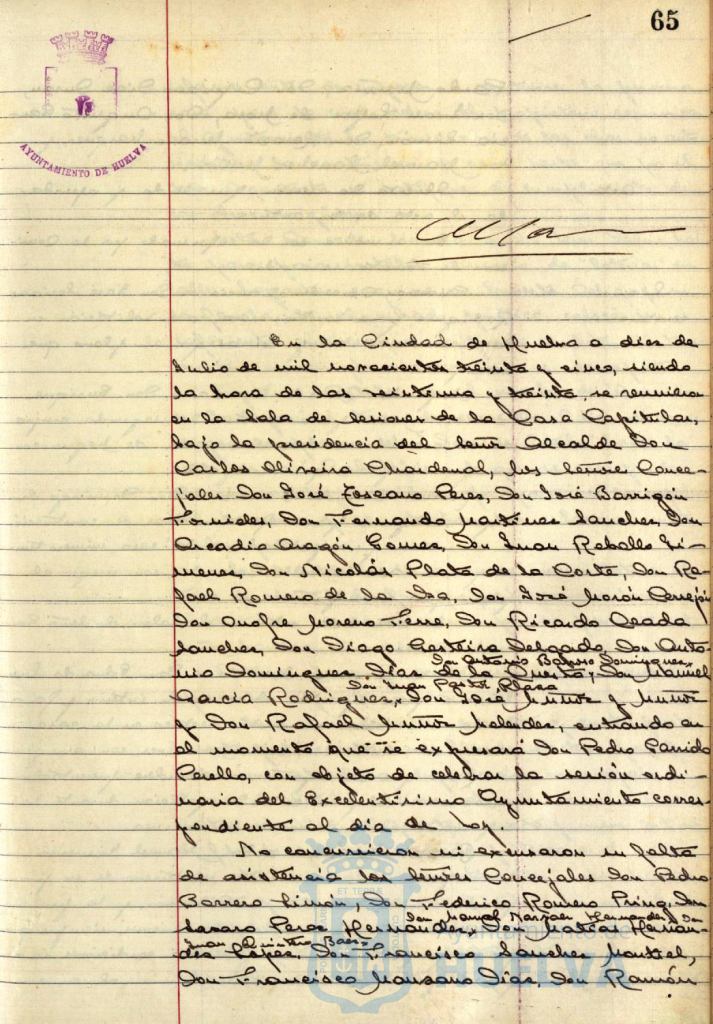 65
AYUNTAMIENTO DE HUELVA
En la Ciudad de Huelva a diez de
Julio de mil novecientos treinta y cinco, siendo
la hora de las veintiuna y treinta, se reunieron
en la Sala de Sesiones de la Casa Capitular,
bajo la presidencia del Señor Alcalde Don
Carlos Oliveira Chardenal, los Señores Conce-
jales Don José Toscano Perez, Don José Barrigón
Fornieles, Don Fernando Martinez Sanchez, Don
Arcadio Aragón Gomez, Don Juan Rebollo Ji-
menez, Don Nicolás Plata de la Corte, Don Ra-
fael Romero de la Isa, Don José Morón Cerrejón
Don Onofre Moreno Ferre, Don Ricardo Abada
Sanchez, Don Diego Delgado, Don Anto-
Don Antonio Barroso Dominguez,
nio Dominguez Diaz de la Cuesta, Don Manuel
Don Juan Pastor Plaza
Garcia Rodriguez, Don José Muñoz y Muñoz
y Don Rafael Muñoz Melendez, entrando en
el momento que se expresará Don Pedro Garrido
Perello, con objeto de celebrar la sesión ordi-
naria del Excelentísimo Ayuntamiento corres-
pondiente al dia de hoy.
No concurrieron ni excusaron su falta
de asistencia los Señores Concejales Don Pedro
Borrero Limón, Don Federico Romero Don
Don Manuel Hernandez Don
Lazaro Perez Hernandez, Don Matias Hernan-
Juan Quintero Baez
dez Lopez, Don Francisco Sanchez Montiel,
Don Francisco Manzano Diaz, Don Ramón
Ayuntamiento de
HUELVA